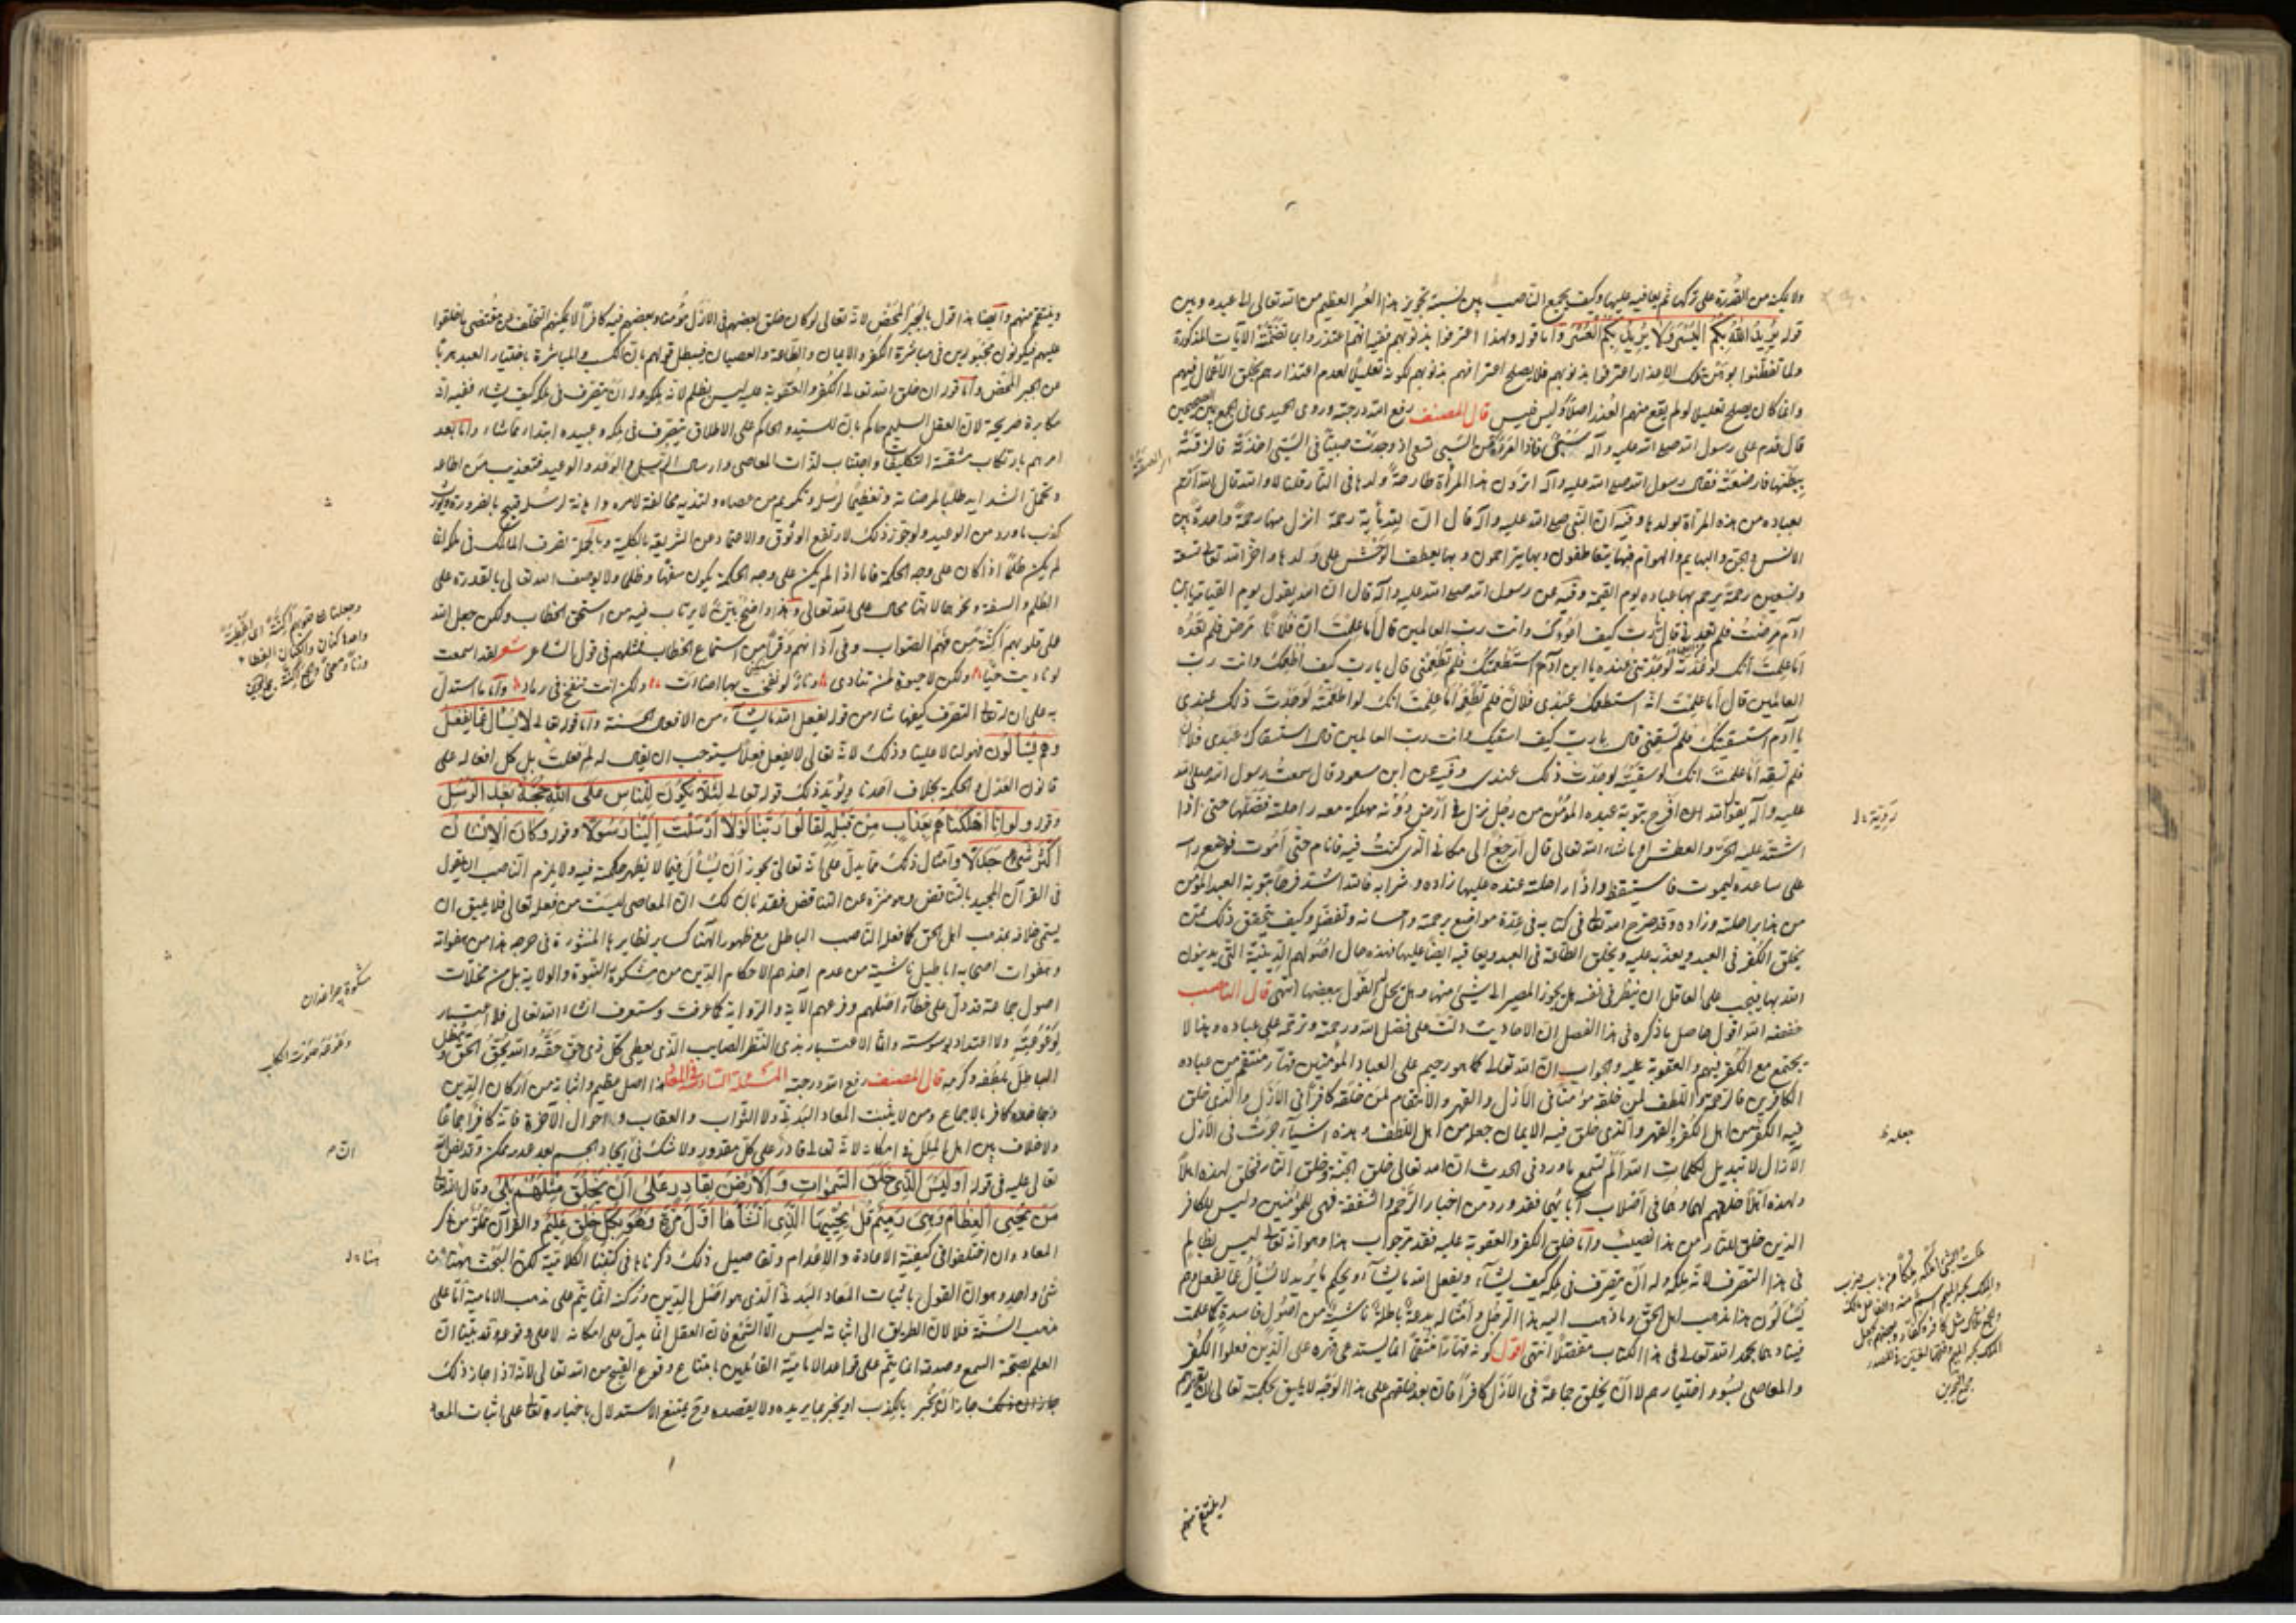 ولا يمكنه من القدرة على تركها ثم يعاقبه عليها وكيف يجمع الناصب بين نسبة تجويز هذا الضر العظيم من الله تعالى الى عبده وبين
قوله يُرِيدُ اللهُ بِكُمُ الْيُسْرَ وَلَا يُرِيدُ بِكُمُ الْعُسْرَ وأما قوله ولهذا اعترفوا بذنوبهم ففيه انهم اعتذروا بما تضمنته الآيات المذكورة
ولما تفطنوا بوهن تلك الاعذار اعترفوا بذنوبهم فلا يصلح اعترافهم بذنوبهم لكونه تعليلاً لعدم اعتذارهم بخلق الأعمال فيهم
وانما كان يصلح تعليلا لو لم يقع منهم العذر اصلاً وليس فليس قال المصنف رفع الله درجته وروى الحميدي في الجمع بين الصحيحين
قال قدم على رسول الله صلى الله عليه وآله سبي فاذا امرأة من السبي تسعى اذ وجدت صبياً في السبي اخذته فالزقته
ببطنها فارضعته فقال رسول الله صلى الله عليه وآله اترون هذه المرأة طارحة ولدها في النار قلنا لا والله قال لله ارحم
بعباده من هذه المرأة بولدها وفيه ان النبي صلى الله عليه وآله قال ان لله مأية رحمة انزل منها رحمة واحدة بين
الانس والجن والبهايم والهوام فبها يتعاطفون وبها يتراحمون وبها يعطف الوحش على ولدها واخر الله تعالى تسعة
وتسعين رحمة يرحم بها عباده يوم القيمة وفيه عن رسول الله صلى الله عليه وآله قال ان الله يقول يوم القيامة يا بن
آدم مرضت فلم تعدني قال يا رب كيف اعودك وانت رب العالمين قال أما علمت ان فلاناً مرض فلم تعده
أما علمت انك لو عدته لوجدتني عنده يا ابن آدم استطعمتك فلم تطعمني قال يا رب كيف أطعمك وانت رب
العالمين قال أما علمت انه استطعمك عبدي فلان فلم تطعمه أما علمت انك لو اطعمته لوجدت ذلك عندي
يا ابن آدم استسقيتك فلم تسقني قال يا رب كيف اسقيك وانت رب العالمين قال استسقاك عبدي فلان
فلم تسقه أما علمت انك لو سقيته لوجدت ذلك عندي وفيه عن ابن مسعود قال سمعت رسول الله صلى الله
عليه وآله يقول لله افرح بتوبة عبده المؤمن من رجل نزل في ارض دوية مهلكة معه راحلته فضلها حتى اذا
اشتد عليه الحر والعطش او ما شاء الله تعالى قال أرجع الى مكاني الذي كنت فيه فانام حتى أموت فوضع رأسه
على ساعده ليموت فاستيقظ واذا راحلته عنده عليها زاده وشرابه فالله اشد فرحا بتوبة العبد المؤمن
من هذا براحلته وزاده وقد صرح الله تعالى في كتابه في عدة مواضع برحمته واحسانه وتفضله وكيف يتحقق ذلك ممن
يخلق الكفر في العبد ويعذبه عليه ويخلق الطاعة في العبد ويعاقبه ايضا عليها فهذه حال اصولهم الدينية التي يدينون
الله بها فيجب على العاقل ان ينظر في نفسه هل يجوز المصير الى شيء منها وهل يحل القول ببعضها انتهى قال الناصب
خفضه الله اقول حاصل ما ذكره في هذا الفصل ان الاحاديث دلت على فضل الله ورحمته وترحمه على عباده وهذا لا
يجتمع مع الكفر فيهم والعقوبة عليه والجواب ان الله تعالى كما هو رحيم على العباد المؤمنين قهار منتقم من عباده
الكافرين فالرحمة واللطف لمن خلقه مؤمناً في الأزل والقهر والانتقام لمن خلقه كافراً في الأزل والذي خلق
فيه الكفر من اهل الكفر والقهر والذي خلق فيه الايمان جعله من اهل اللطف وهذه اشياء جرت في الأزل
الآزال لا تبديل لكلمات الله ألم تسمع ما ورد في الحديث ان الله تعالى خلق الجنة وخلق النار فخلق لهذه اهلاً
ولهذه اهلاً خلقهم لهما وهما في اصلاب آبائهما فقد ورد من اخبار الرحم والشفقة فهي للمؤمنين وليس للكافر
الذين خلق للنار من هذا نصيب وأما خلق الكفر والعقوبة عليه فقد مر جواب هذا وهو انه تعالى ليس بظالم
في هذا التصرف لانه ملكه وله أن يتصرف في ملكه كيف يشاء ويفعل الله ما يشاء ويحكم ما يريد لا يُسأل عما يفعل وهم
يُسألون هذا مذهب اهل الحق وما ذهب اليه هذا الرجل وأمثاله بدعة باطلة ناشية من اصول فاسدة كما علمت
فسادها بحمد الله تعالى في هذا الكتاب مفصلاً انتهى اقول كونه قهارا منتقما انما يستدعي قهره على الذين فعلوا الكفر
والمعاصي بسوء اختيارهم لا أن يخلق جماعة في الأزل كافراً فان بعد خلقهم على هذا الوجه لا يليق بحكمته تعالى ان يقهرهم
وينتقم منهم
روية
جعله
وينتقم منهم وأيضا هذا قول بالجبر المحض لانه تعالى لو كان خلق بعضهم في الازل مؤمنا وبعضهم فيه كافراً لا يمكنهم التخلف عن مقتضى ما خلقوا
عليهم فيكونون مجبورين في مباشرة الكفر والايمان والطاعة والعصيان فيبطل قولهم بأن الكسب والمباشرة باختيار العبد هربا
عن الجبر المحض وأما قوله ان خلق الله تعالى الكفر والعقوبة عليه ليس بظلم لانه ملكه وله ان يتصرف في ملكه كيف يشاء ففيه انه
مكابرة صريحة لان العقل السليم حاكم بان للسيد والحاكم على الاطلاق يتصرف في ملكه وعبيده ابتداء ما شاء وأما بعد
امرهم بارتكاب مشقة التكليفات واجتناب لذات المعاصي وارسال الرسل والوعد والوعيد فتعذيب من اطاعه
وتحمل الشدايد طلبا لمرضاته وتعظيما لرسله وتكريم من عصاه ولتذيه مخالفة لامره واهانة لرسله قبيح بالضرورة
كذب ما ورد من الوعيد ولو جوز ذلك لارتفع الوثوق والاعتماد عن الشريعة بالكلية وبالجملة تصرف المالك في ملكه انما
لم يكن ظلماً اذا كان على وجه الحكمة فاما اذا لم يكن على وجه الحكمة يكون سفها وظلما ولا يوصف الله تعالى بالقدرة على
الظلم والسفه ونحوهما لانها محال على الله تعالى وهذا واضح بيّن لا يرتاب فيه من استحق الخطاب ولكن جعل الله
على قلوبهم أكنة من فهم الصواب وفي آذانهم وقراً من استماع الخطاب فمثلهم في قول الشاعر شعر لقد اسمعت
لو ناديت حيّا ولكن لا حيوة لمن تنادي ونار لو نفخت بها اضاءت ولكن انت تنفخ في رماد وأما ما استدل
به على ان له تعالى التصرف كيفما شاء من قوله يفعل الله ما يشاء من الافعال الحسنة وأما قوله تعالى لَا يُسْأَلُ عَمَّا يَفْعَلُ
وَهُمْ يُسْأَلُون فهو لنا لا علينا وذلك لانه تعالى لا يفعل فعلاً يستوجب ان يقال له لم فعلت بل كل افعاله على
قانون العدل والحكمة بخلاف احدنا ويؤيد ذلك قوله تعالى لِئَلَّا يَكُونَ لِلنَّاسِ عَلَى اللهِ حُجَّةٌ بَعْدَ الرُّسُلِ
وقوله وَلَوْ أَنَّا أَهْلَكْنَاهُمْ بِعَذَابٍ مِنْ قَبْلِهِ لَقَالُوا رَبَّنَا لَوْلَا أَرْسَلْتَ إِلَيْنَا رَسُولًا وقوله وَكَانَ الْإِنْسَانُ
أَكْثَرَ شَيْءٍ جَدَلًا وأمثال ذلك مما يدل على انه تعالى يجوز أن يُسأل فيما لا يظهر حكمته فيه ولا يلزم الناصب ان يقول
في القرآن المجيد بالتناقض وهو منزه عن التناقض فقد بان لك ان المعاصي ليست من فعله تعالى فلا يليق ان
يسمى خلافه بمذهب اهل الحق كما فعله الناصب الباطل مع ظهور انها كساير نظايرها المنثورة في جرحه هذا من هفواته
وهفوات اصحابه اباطيل ناشية من عدم اخذهم الاحكام الدين من مشكوة النبوة والولاية بل من مخيلات
اصول جماعة قد دل على خطاء اصلهم وفرعهم الآية والرواية كما عرفت وستعرف انشاء الله تعالى فلا اعتبار
لوعوعته ولا اعتداد بوسوسته وانما الاعتبار بذي النظر الصايب الذي يعطي كل ذي حق حقه والله يحق الحق ويبطل
الباطل بلطفه وكرمه قال المصنف رفع الله درجته المسئلة السادسة في المعاد هذا اصل عظيم واثباته من اركان الدين
وجاحده كافر بالاجماع ومن لا يثبت المعاد البدني ولا الثواب والعقاب واحوال الآخرة فانه كافر اجماعا
ولا خلاف بين اهل الملل في امكانه لانه تعالى قادر على كل مقدور ولا شك في أن ايجاد الجسم بعد عدمه ممكن وقد نص الله
تعالى عليه في قوله أَوَلَيْسَ الَّذِي خَلَقَ السَّمٰوَاتِ وَالْأَرْضَ بِقَادِرٍ عَلَىٰ أَنْ يَخْلُقَ مِثْلَهُمْ بَلَىٰ وقال تعالى
مَنْ يُحْيِي الْعِظَامَ وَهِيَ رَمِيمٌ قُلْ يُحْيِيهَا الَّذِي أَنْشَأَهَا أَوَّلَ مَرَّةٍ وَهُوَ بِكُلِّ خَلْقٍ عَلِيمٌ والقرآن مملو من ذكر
المعاد وان اختلفوا في كيفية الاعادة والاعدام وتفاصيل ذلك ذكرناها في كتبنا الكلامية لكن البحث هنا عن
شيء واحد وهو ان القول باثبات المعاد البدني الذي هو اصل الدين وركنه انما يتم على مذهب الامامية أما على
مذهب السنة فلا لان الطريق الى اثباته ليس الا السمع فان العقل انما يدل على امكانه لا على وقوعه وقد بينا ان
العلم بصحة السمع وصدقه انما يتم على قواعد الامامية القائلين بامتناع وقوع القبيح من الله تعالى لانه اذا جاز ذلك
جاز ان يخبر بالكذب او يخبر بما يريده ولا يقصده وح يمتنع الاستدلال باخباره تعالى على اثبات المعاد
وجعلنا على قلوبهم أكنة اى اغطية
واحدها كنان والكنان الغطاء